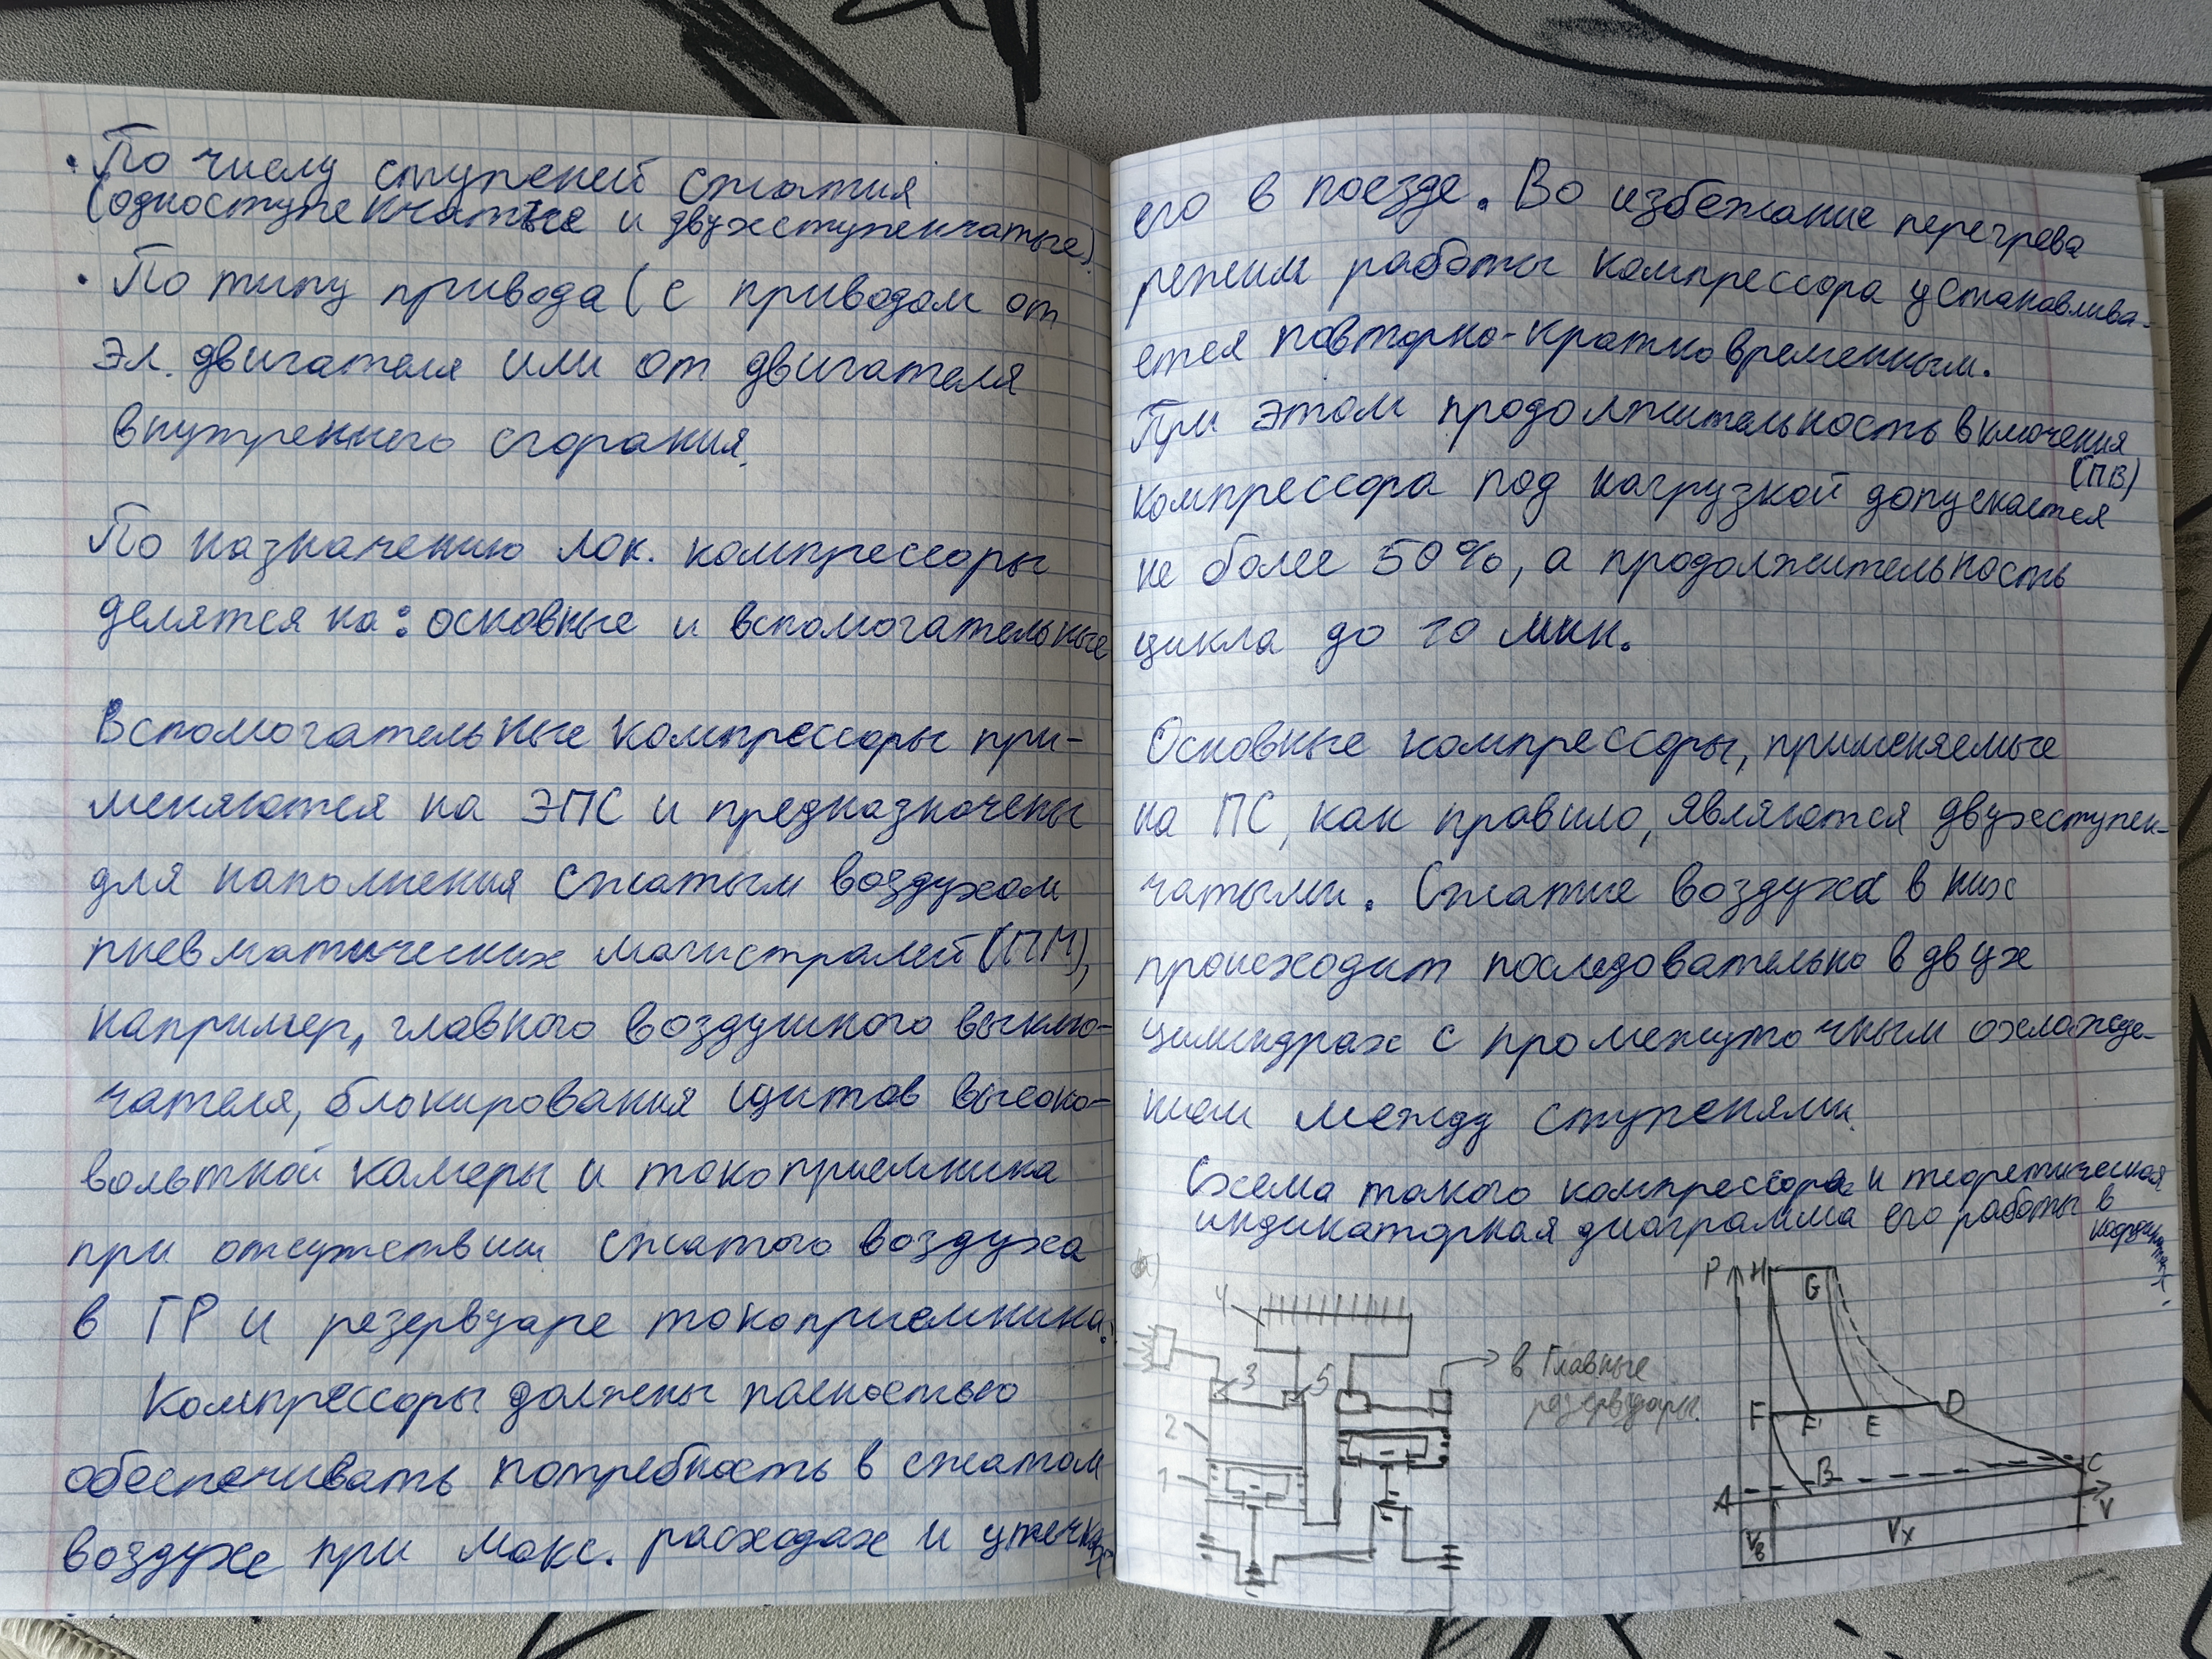 • По числу ступеней сжатия
(одноступенчатые и двухступенчатые).
• По типу привода (с приводом от
эл. двигателя или от двигателя
внутреннего сгорания.
По назначению лок. компрессоры
делятся на: основные и вспомогательные
Вспомогательные компрессоры при-
меняются на ЭПС и предназначены
для наполнения сжатым воздухом
пневматических магистралей (ПМ),
например, главного воздушного выклю-
чателя, блокирования щитов высоко-
вольтной камеры и токоприемника
при отсутствии сжатого воздуха
в ГР и резервуаре токоприемника.
Компрессоры должны полностью
обеспечивать потребность в сжатом
воздухе при макс. расходах и утечках
его в поезде. Во избежание перегрева
режим работы компрессора устанавлива-
ется повторно-кратковременным.
При этом продолжительность включения
(ПВ)
компрессора под нагрузкой допускается
не более 50%, а продолжительность
цикла до 10 мин.
Основные компрессоры, применяемые
на ПС, как правило, являются двухступен-
чатыми. Сжатие воздуха в них
происходит последовательно в двух
цилиндрах с промежуточным охлажде-
нием между ступенями.
Схема такого компрессора и теоретическая
индикаторная диаграмма его работы в
координатах.
4
3
5
в Главные
резервуары.
2
1
P
H
G
F
F'
E
D
B
C
A
V
Vв
Vx